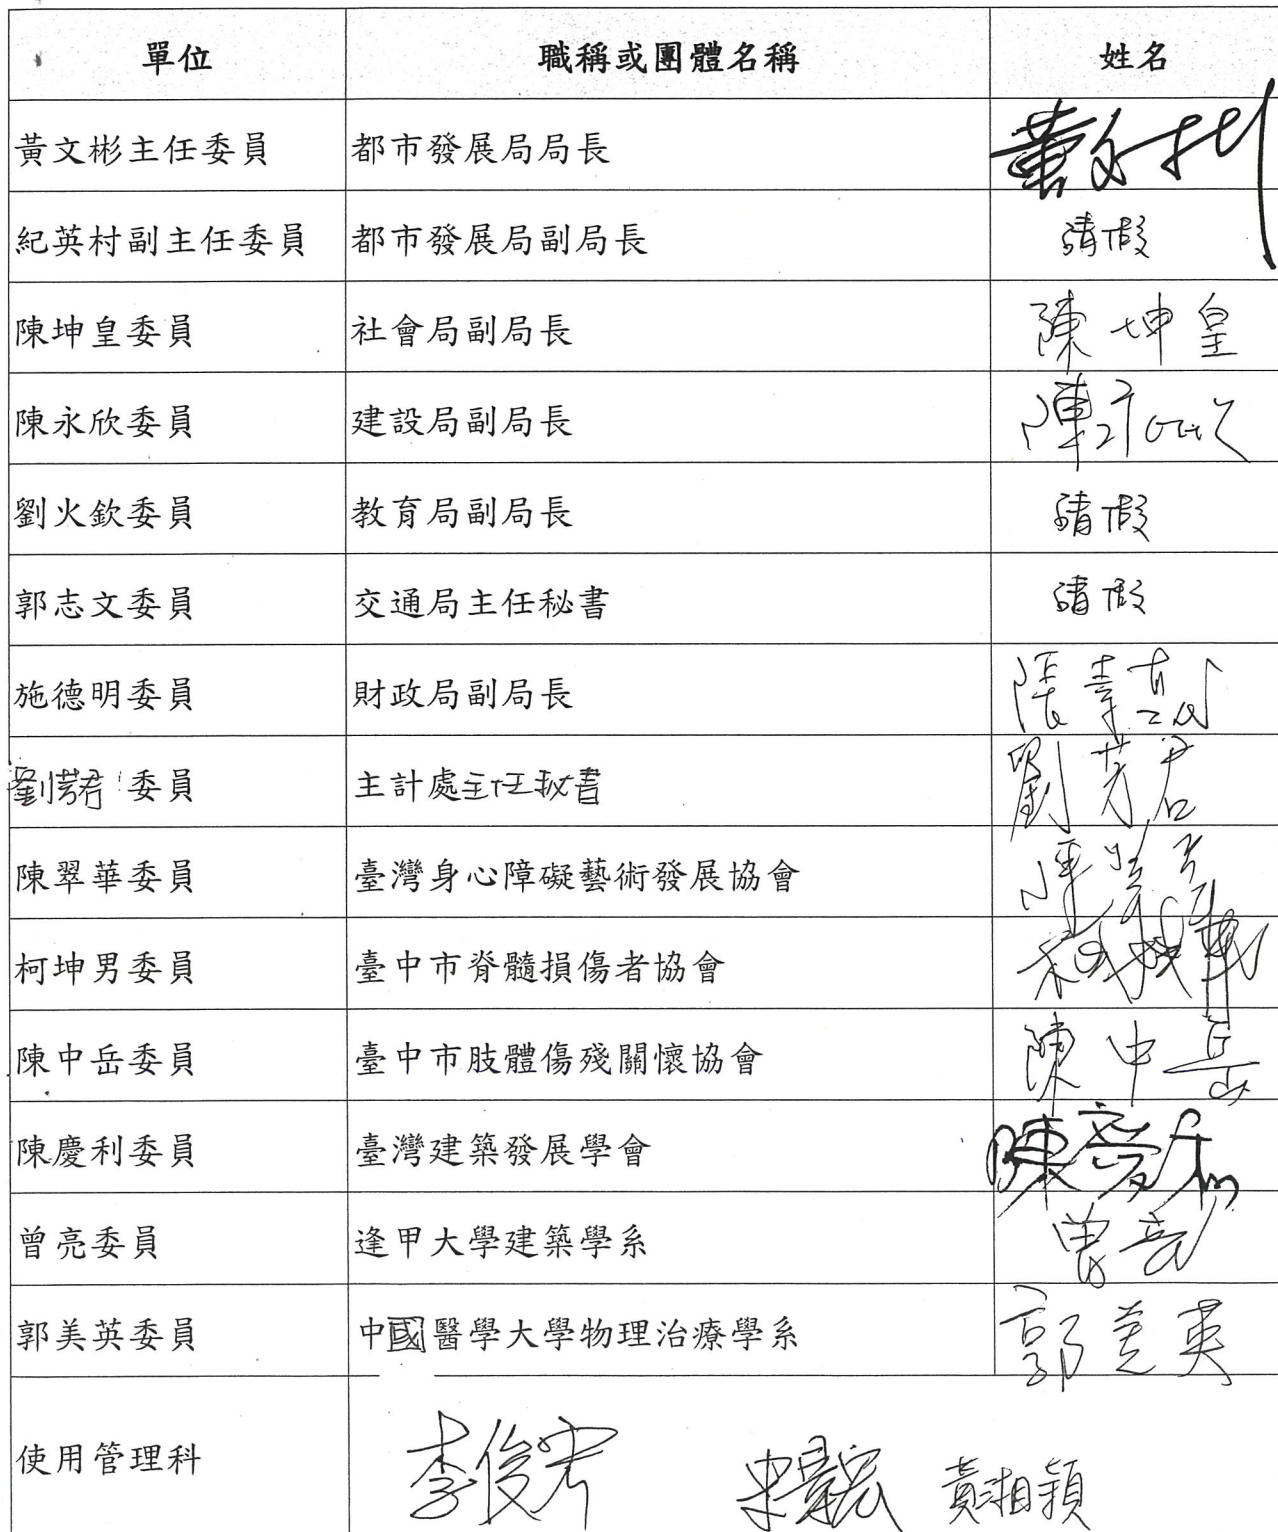 單位 職稱或團體名稱 姓名
黃文彬主任委員 都市發展局局長 黃文彬
紀英村副主任委員 都市發展局副局長 請假
陳坤皇委員 社會局副局長 陳坤皇
陳永欣委員 建設局副局長
劉火欽委員 教育局副局長 請假
郭志文委員 交通局主任秘書 請假
施德明委員 財政局副局長
劉芳君委員 主計處主任秘書 劉芳君
陳翠華委員 臺灣身心障礙藝術發展協會
柯坤男委員 臺中市脊髓損傷者協會
陳中岳委員 臺中市肢體傷殘關懷協會 陳中岳
陳慶利委員 臺灣建築發展學會 陳慶利
曾亮委員 逢甲大學建築學系 曾亮
郭美英委員 中國醫學大學物理治療學系 郭美英
使用管理科 李俊宏 黃湘穎